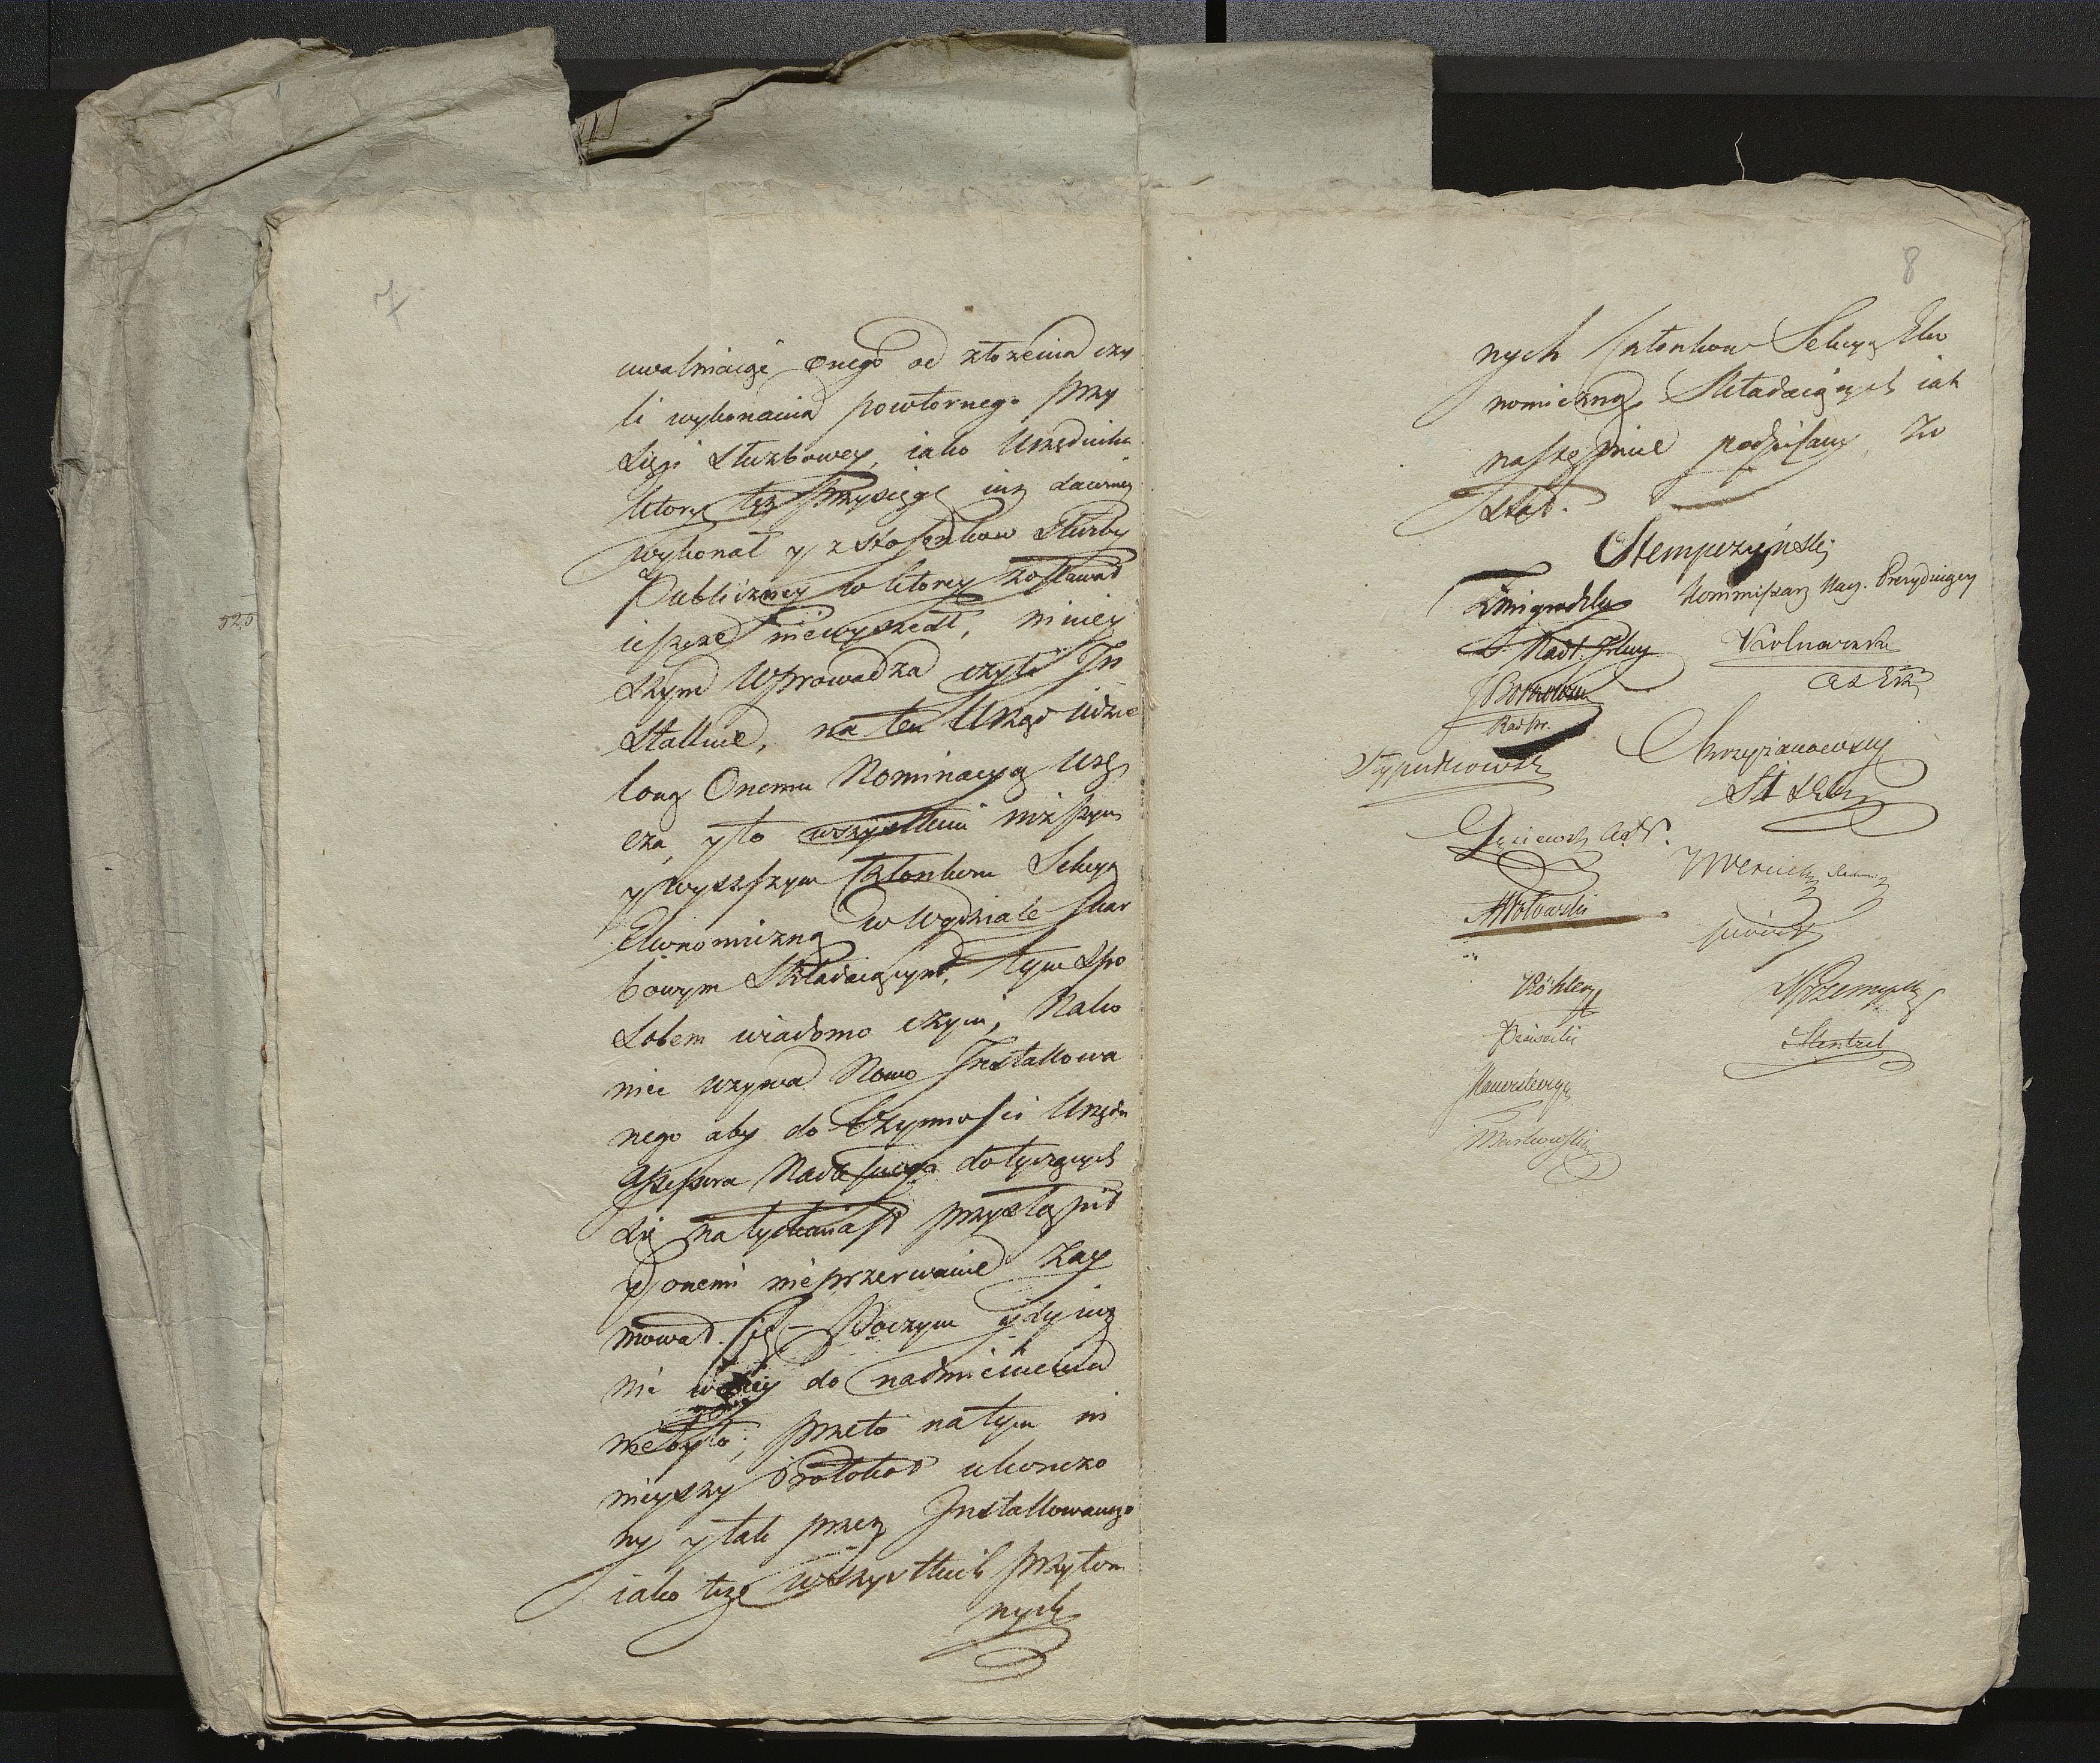 7
uwalniaiąc onego od złożenia czy
li wykonania powtornego Przy
sięgi Służbowey, iako Urzędnika
ktory tęż Przysięgę iuż dawniey
wykonał y z stosunkow Służby
Publiczney w ktorey zostawał
ieszcze niewyszedł, niniey
szym Wprowadza czyli In
stalluie, na ten Urząd udzie
loną Onemu Nominacyą Urzę
cza, y to wszystkim niższym
y wyższym Członkom Sekcyą
Ekonomiczną w Wydziale Skar
bowym Składaiącym, tym Spo
sobem wiadomo czyni, Nako
niec wzywa Nowo Installowa
nego aby do Czynności Urzędu
Assessora Nadleśnego dotyczących
się natychmiast przystąpił
y onemi nieprzerwanie Zay
mował się – Poczym gdy iuż
nic więcey do nadmienienia
niebyło, przeto na tym ni
nieyszy Protokoł ukończo
ny y tak przez Installowanego
iako też wszystkich przytom
nych
8
nych Członkow Sekcyą Eko
nomiczną Składaiących iak
następnie podpisany Zo
stał.
Stempczyński
Kommissarz Nay. Prezyduiący
Żmigrodzky
Nadl. Jlny
Kolnarski
Borkowski
Chrzyianowsky
Typułkowski
Wernich
Wołowski
Köhler
Stentzel
Markowski
525